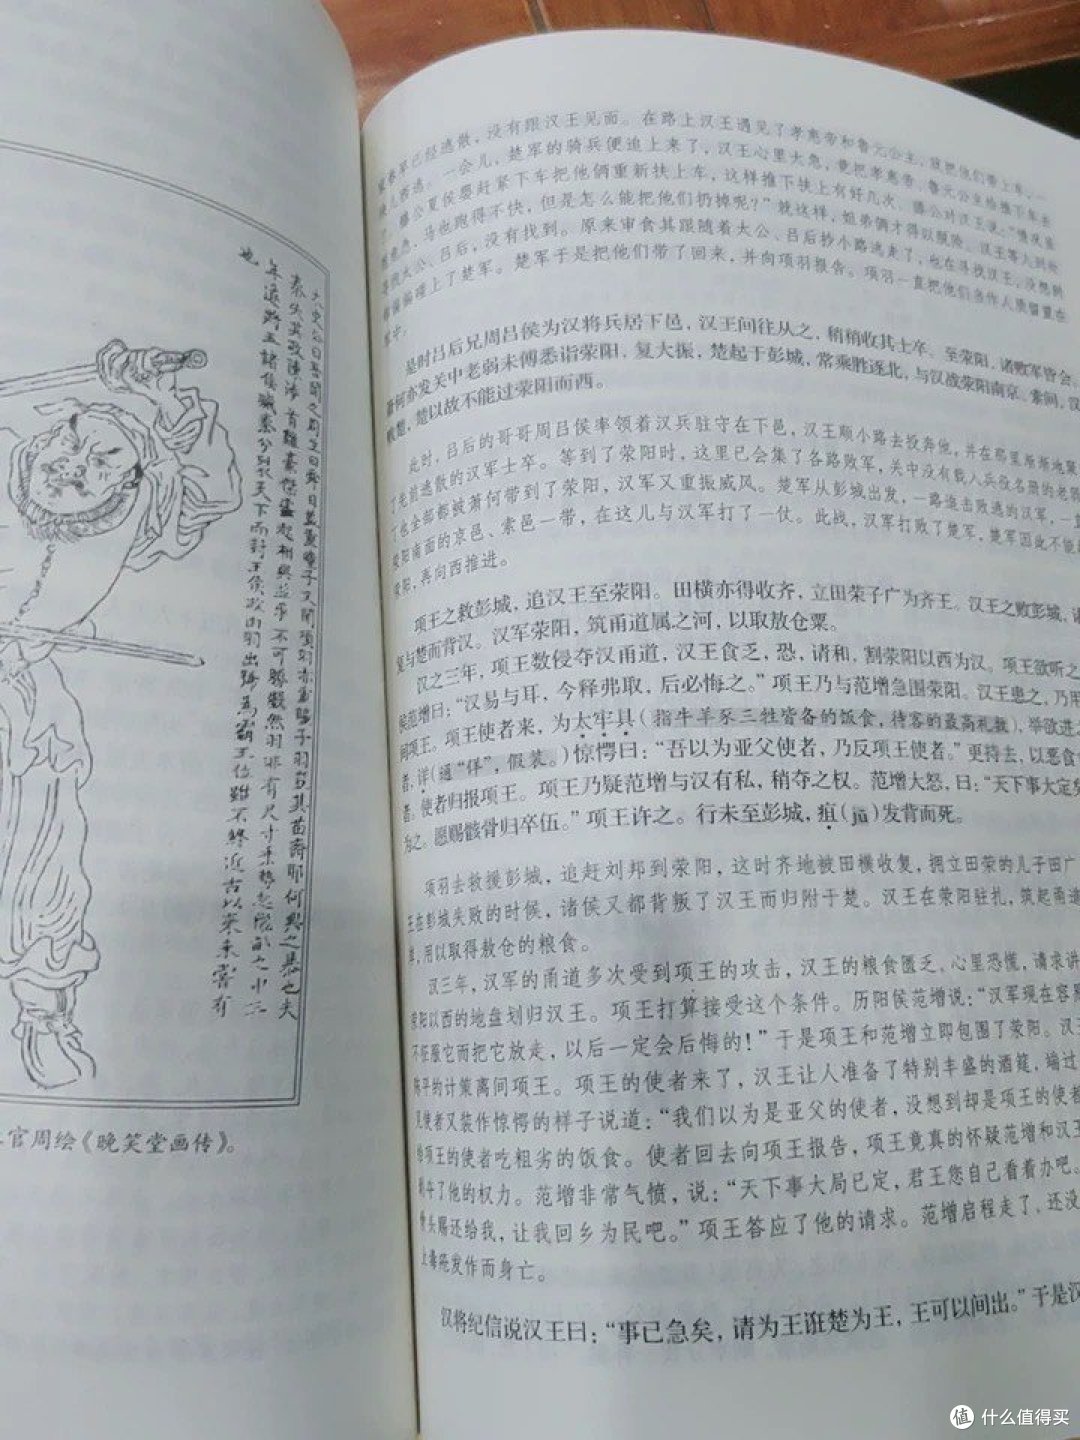 太史公曰吾闻之周生曰舜目盖重瞳子又闻项羽亦重瞳子羽岂其苗裔耶何兴之暴也夫
秦失其政陳涉首難豪傑蠭起相與並爭不可勝數然羽非有尺寸乘勢起隴畝之中三
年遂將五諸侯滅秦分裂天下而封王侯政由羽出號爲霸王位雖不終近古以來未嘗有
也
官周绘《晚笑堂画传》。
家眷早已经逃散，没有跟汉王见面。在路上汉王遇见了孝惠帝和鲁元公主，就把他们带上车，一
一会儿，楚军的骑兵便追上来了，汉王心里大急，竟把孝惠帝、鲁元公主给推下车去
了。滕公夏侯婴赶紧下车把他俩重新扶上车，这样推下扶上有好几次。滕公对汉王说：“情况虽
然危急，马也跑得不快，但是怎么能把他们扔掉呢？”就这样，姐弟俩才得以脱险。汉王等人到处
寻找太公、吕后，没有找到。原来审食其跟随着太公、吕后抄小路逃走了，也在寻找汉王，没想到
却偏偏碰上了楚军。楚军于是把他们带了回来，并向项羽报告。项羽一直把他们当作人质留置在
军中。
是时吕后兄周吕侯为汉将兵居下邑，汉王间往从之，稍稍收其士卒。至荥阳，诸败军皆会。
萧何亦发关中老弱未傅悉诣荥阳，复大振，楚起于彭城，常乘胜逐北，与汉战荥阳南京、索间，汉
败楚，楚以故不能过荥阳而西。
此时，吕后的哥哥周吕侯率领着汉兵驻守在下邑，汉王顺小路去投奔他，并在那里渐渐地聚
了先前逃散的汉军士卒。等到了荥阳时，这里已会集了各路败军，关中没有载入兵役名册的老弱
了也全部都被萧何带到了荥阳，汉军又重振威风。楚军从彭城出发，一路追击败逃的汉军，一直
荥阳南面的京邑、索邑一带，在这儿与汉军打了一仗。此战，汉军打败了楚军，楚军因此不能
荥阳，再向西推进。
项王之救彭城，追汉王至荥阳。田横亦得收齐，立田荣子广为齐王。汉王之败彭城，诸
复与楚而背汉。汉军荥阳，筑甬道属之河，以取敖仓粟。
汉之三年，项王数侵夺汉甬道，汉王食乏，恐，请和，割荥阳以西为汉。项王欲听之
侯范增曰：“汉易与耳，今释弗取，后必悔之。”项王乃与范增急围荥阳。汉王患之，乃用
间项王。项王使者来，为太牢具（指牛羊豕三牲皆备的饭食，待客的最高礼数），举欲进之
者，详（通“佯”，假装。）惊愕曰：“吾以为亚父使者，乃反项王使者。”更持去，以恶食
者。使者归报项王。项王乃疑范增与汉有私，稍夺之权。范增大怒，曰：“天下事大定矣
为之。愿赐骸骨归卒伍。”项王许之。行未至彭城，疽（jū）发背而死。
项羽去救援彭城，追赶刘邦到荥阳，这时齐地被田横收复，拥立田荣的儿子田广
王在彭城失败的时候，诸侯又都背叛了汉王而归附于楚。汉王在荥阳驻扎，筑起甬道
岸，用以取得敖仓的粮食。
汉三年，汉军的甬道多次受到项王的攻击，汉王的粮食匮乏，心里恐慌，请求讲
荥阳以西的地盘划归汉王。项王打算接受这个条件。历阳侯范增说：“汉军现在容易
不征服它而把它放走，以后一定会后悔的！”于是项王和范增立即包围了荥阳。汉
陈平的计策离间项王。项王的使者来了，汉王让人准备了特别丰盛的酒筵，端过
见使者又装作惊愕的样子说道：“我们以为是亚父的使者，没想到却是项王的使者
给项王的使者吃粗劣的饭食。使者回去向项王报告，项王竟真的怀疑范增和汉王
剥夺了他的权力。范增非常气愤，说：“天下事大局已定，君王您自己看着办吧。
骨头赐还给我，让我回乡为民吧。”项王答应了他的请求。范增启程走了，还没
上毒疮发作而身亡。
汉将纪信说汉王曰：“事已急矣，请为王诳楚为王，王可以间出。”于是汉
值 什么值得买